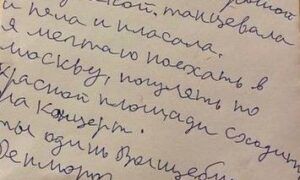 танцевала
и пела и плясала.
я мечтаю поехать в
москву, погулять по
красной площади сходить
на концерт.
ты один Волшебн